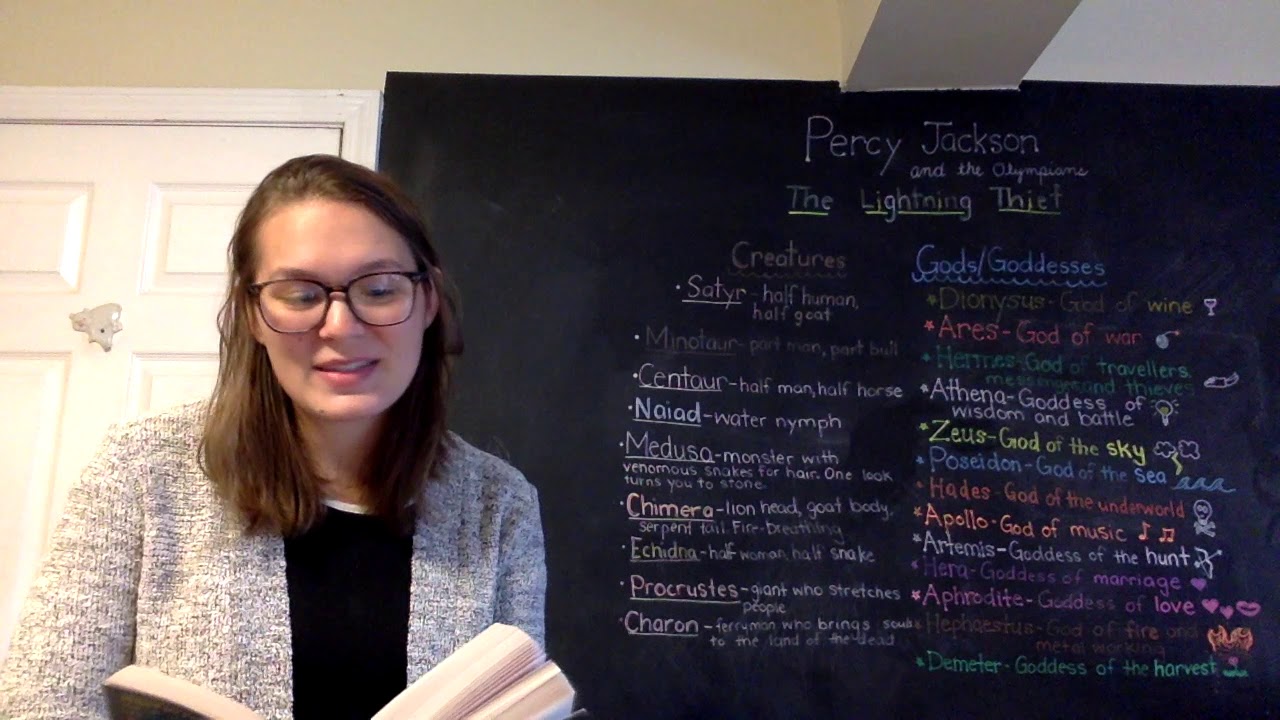 Percy Jackson
and the Olympians
The Lightning Thief
Creatures
• Satyr - half human,
half goat
• Minotaur - part man, part bull
• Centaur - half man, half horse
• Naiad - water nymph
• Medusa - monster with
venomous snakes for hair. One look
turns you to stone.
• Chimera - lion head, goat body,
serpent tail. Fire-breathing
• Echidna - half woman, half snake
• Procrustes - giant who stretches
people
• Charon - ferryman who brings souls
to the land of the dead
Gods/Goddesses
* Dionysus - God of wine
* Ares - God of war
* Hermes - God of travellers,
messengers and thieves
* Athena - Goddess of
wisdom and battle
* Zeus - God of the sky
* Poseidon - God of the sea
* Hades - God of the underworld
* Apollo - God of music
* Artemis - Goddess of the hunt
* Hera - Goddess of marriage
* Aphrodite - Goddess of love
* Hephaestus - God of fire and
metal working
* Demeter - Goddess of the harvest